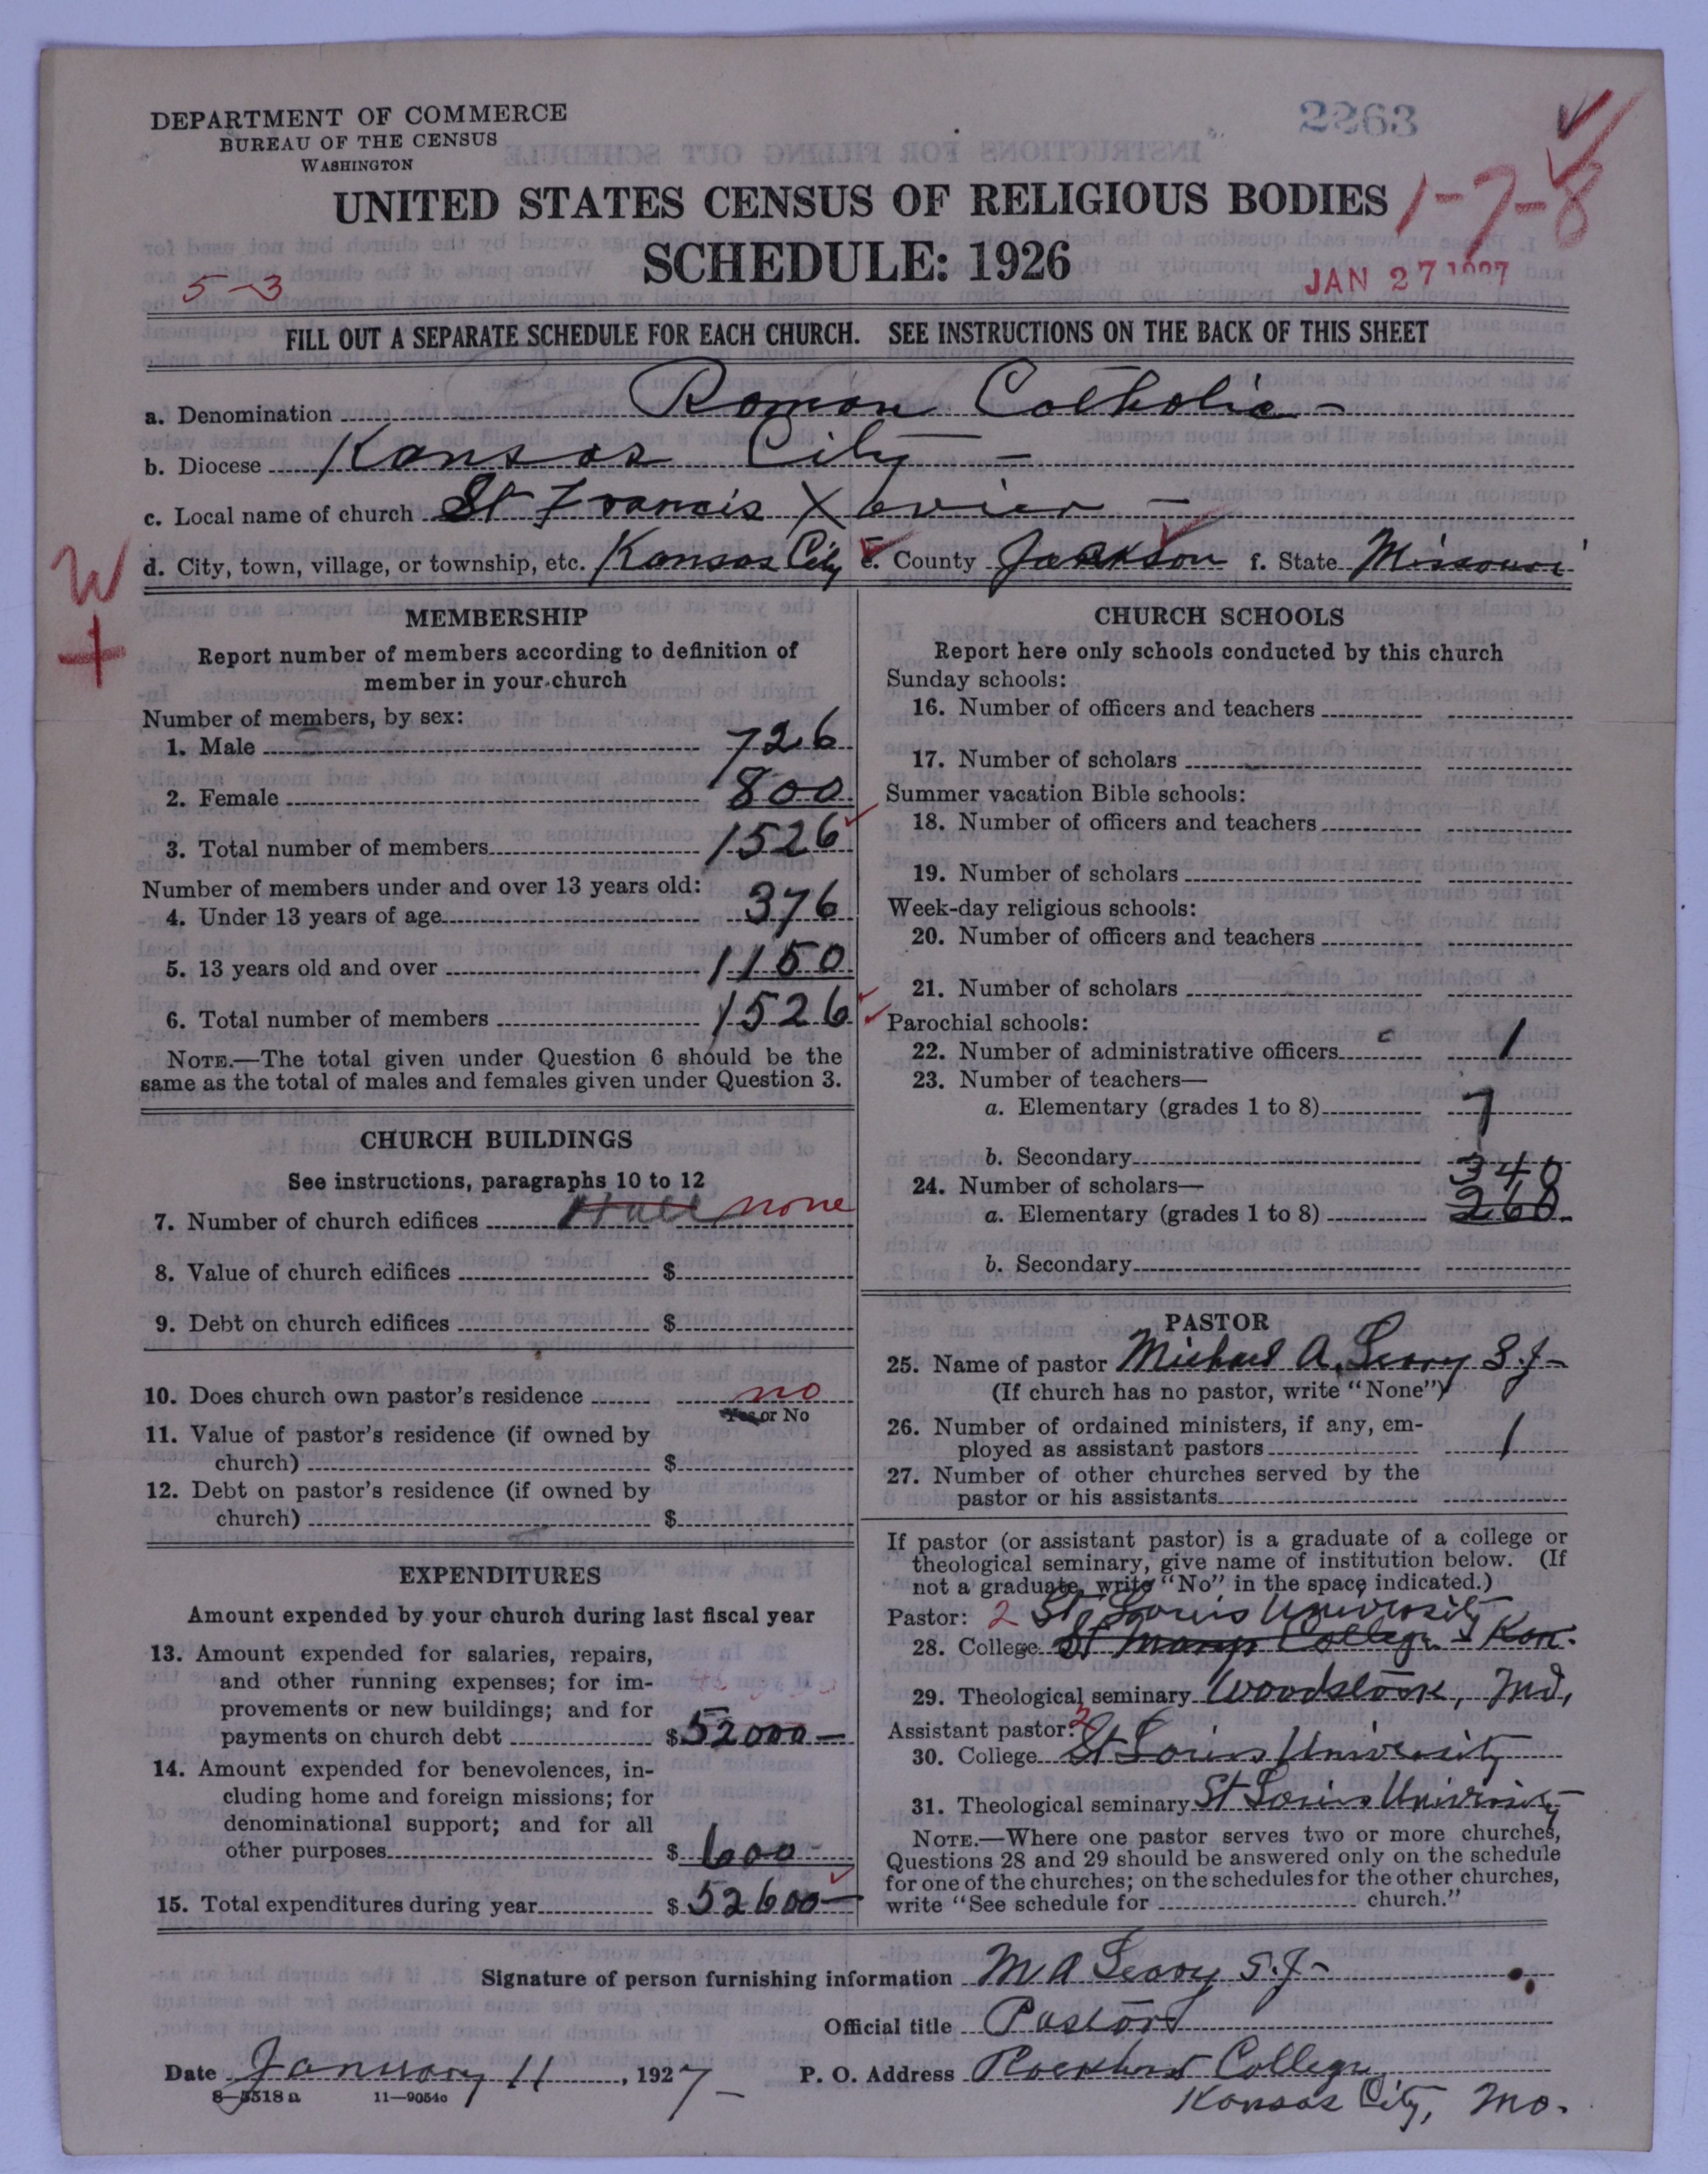 DEPARTMENT OF COMMERCE
BUREAU OF THE CENSUS
WASHINGTON
2263
UNITED STATES CENSUS OF RELIGIOUS BODIES
1-7-8
SCHEDULE: 1926
5-3
JAN 27 1927
FILL OUT A SEPARATE SCHEDULE FOR EACH CHURCH. SEE INSTRUCTIONS ON THE BACK OF THIS SHEET
a. Denomination Roman Catholic -
b. Diocese Kansas City -
c. Local name of church St Francis Xavier -
d. City, town, village, or township, etc. Kansas City e. County Jackson f. State Missouri
W
+
MEMBERSHIP
Report number of members according to definition of
member in your church
Number of members, by sex:
1. Male 726
2. Female 800
3. Total number of members 1526
Number of members under and over 13 years old:
4. Under 13 years of age 376
5. 13 years old and over 1150
6. Total number of members 1526
NOTE.—The total given under Question 6 should be the
same as the total of males and females given under Question 3.
CHURCH BUILDINGS
See instructions, paragraphs 10 to 12
7. Number of church edifices Hall none
8. Value of church edifices $
9. Debt on church edifices $
10. Does church own pastor's residence no
Yes or No
11. Value of pastor's residence (if owned by
church) $
12. Debt on pastor's residence (if owned by
church) $
EXPENDITURES
Amount expended by your church during last fiscal year
13. Amount expended for salaries, repairs,
and other running expenses; for im-
provements or new buildings; and for
payments on church debt $52000-
14. Amount expended for benevolences, in-
cluding home and foreign missions; for
denominational support; and for all
other purposes $600-
15. Total expenditures during year $52600-
CHURCH SCHOOLS
Report here only schools conducted by this church
Sunday schools:
16. Number of officers and teachers
17. Number of scholars
Summer vacation Bible schools:
18. Number of officers and teachers
19. Number of scholars
Week-day religious schools:
20. Number of officers and teachers
21. Number of scholars
Parochial schools:
22. Number of administrative officers 1
23. Number of teachers—
a. Elementary (grades 1 to 8) 7
b. Secondary
340
24. Number of scholars—
a. Elementary (grades 1 to 8) 260
b. Secondary
PASTOR
25. Name of pastor Michael A. Leary S.J-
(If church has no pastor, write "None")
26. Number of ordained ministers, if any, em-
ployed as assistant pastors 1
27. Number of other churches served by the
pastor or his assistants
If pastor (or assistant pastor) is a graduate of a college or
theological seminary, give name of institution below. (If
not a graduate, write "No" in the space indicated.)
Pastor: 2 St Louis University
28. College St Marys College Kan.
29. Theological seminary Woodstock, Md,
Assistant pastor: 2
30. College St Louis University
31. Theological seminary St Louis University
NOTE.—Where one pastor serves two or more churches,
Questions 28 and 29 should be answered only on the schedule
for one of the churches; on the schedules for the other churches,
write "See schedule for church."
Signature of person furnishing information M A Leary S.J-
Official title Pastor
Date January 11, 1927- P. O. Address Rockhurst College
Kansas City, Mo.
8-5518a 11-9054a